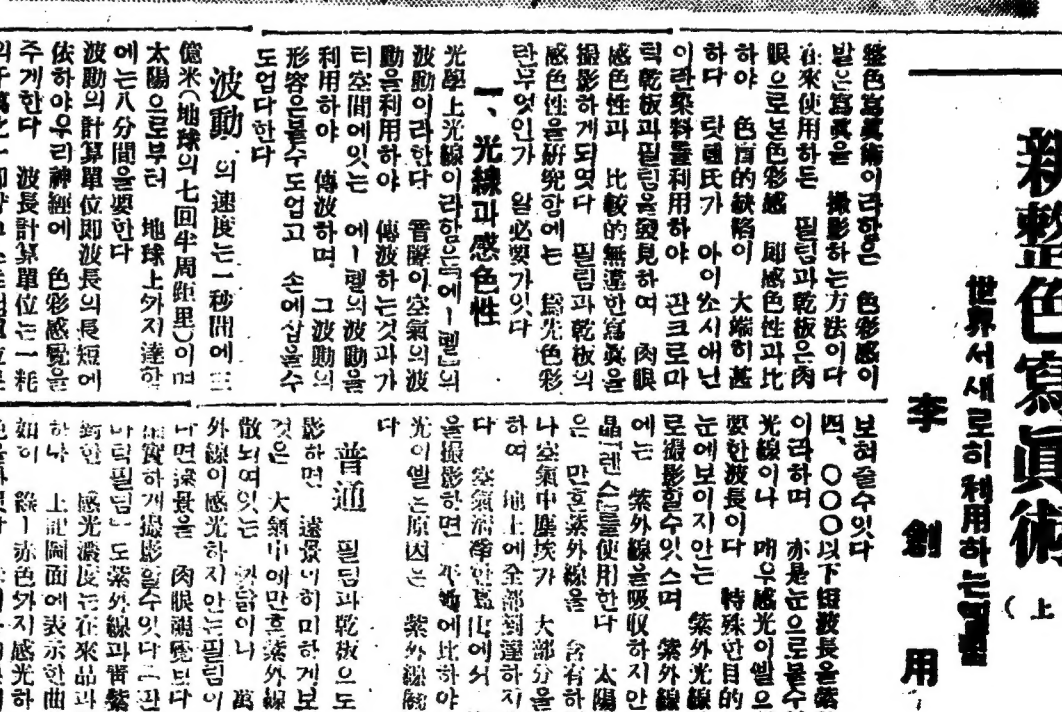 新整色寫眞術 (上)
世界서새로히利用하는
李創用
整色寫眞術이라함은 色彩感이
발은寫眞을 撮影하는方法이다
在來使用하든 필림과乾板은肉
眼으로본色彩感 即感色性과比
하야 色盲的缺陷이 大端히甚
하다 릿텐氏가 아이소시애닌
이란染料를利用하야 판크로마
틱乾板과필림을發見하여 肉眼
感色性과 比較的無違한寫眞을
撮影하게되엿다 필림과乾板의
感色性을硏究함에는 爲先色彩
란무엇인가 알必要가잇다
一、光線과感色性
光學上光線이라함은「에ー텔」의
波動이라한다 音響이空氣의波
動을利用하야 傳波하는것과가
티空間에잇는 에ー텔의波動을
利用하야 傳波하며 그波動의
形容은볼수도업고 손에삼을수
도업다한다
波動의速度는一秒間에三
億米(地球의七回半周距里)이며
太陽으로부터 地球上外지達함
에는八分間을要한다
波動의計算單位即波長의長短에
依하야우리神經에 色彩感覺을
주게한다 波長計算單位는一粍
보혀줄수잇다
四、〇〇〇以下短波長을紫
이라하며 亦是눈으로볼수
光線이나 매우感光이빨으
要한波長이다 特殊한目的
눈에보이지안는 紫外光線
로撮影할수잇스며 紫外線
에는 紫外線을吸収하지안
晶「렌스」를使用한다 太陽
은 만흔紫外線을 含有하
나空氣中塵埃가 大部分을
하여 地上에全部到達하지
다 空氣淸淨한高山에서
을撮影하면 平地에比하야
光이빨은原因은 紫外線關
다
普通 필림과乾板으로
影하면 遠景이히미하게보
것은 大氣中에만흔紫外線
散되여잇는 까닭이나 萬
外線이感光하지안는필림이
나면遠景을 肉眼視覺보다
確實하게撮影할수잇다 판
마틱필림」도紫外線과靑紫
對한 感光濃度는在來品과
하나 上記圖面에表示한曲
如히 綠ー赤色外지感光하